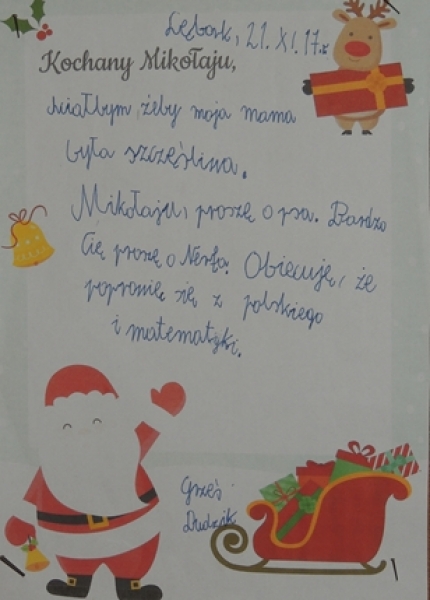 Lębork, 21.XI.17r.
Kochany Mikołaju,
chiałbym, żeby moja mama
była szczęśliwa.
Mikołaju, proszę o psa. Bardzo
Cię proszę o Nerfa. Obiecuję, że
poprawię się z polskiego
i matematyki.
Grześ
Dudzik